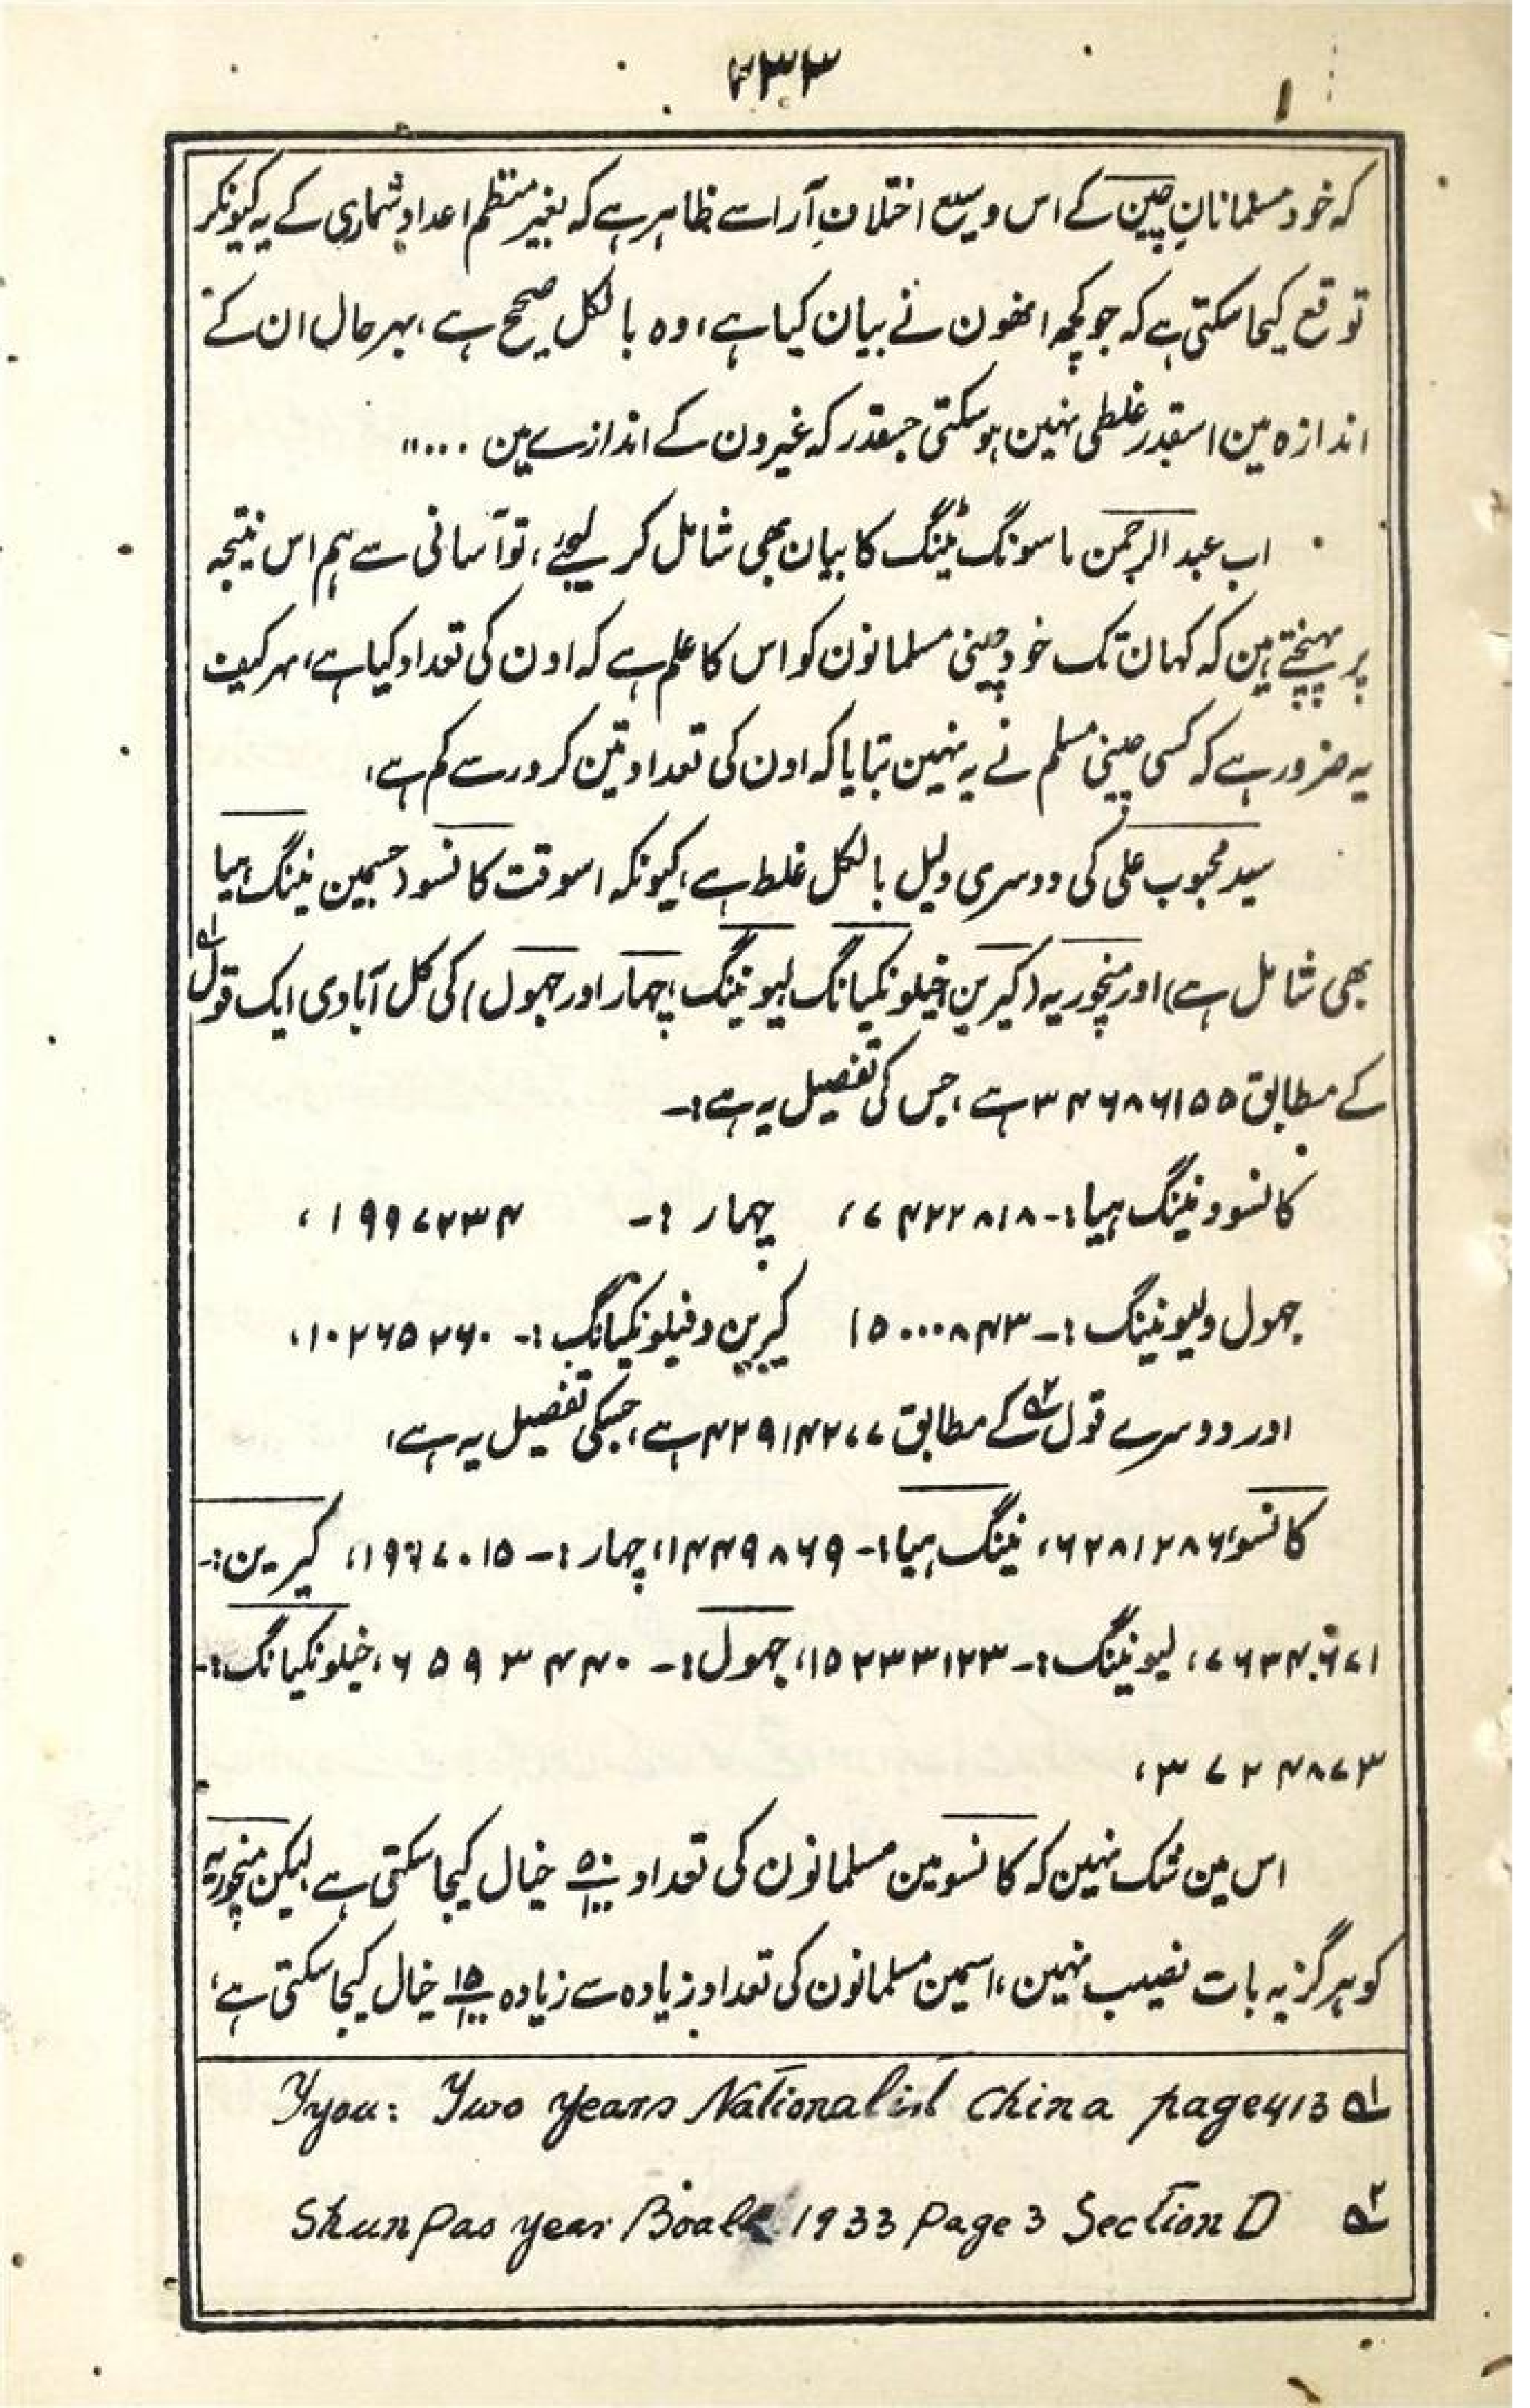 ۲۳۳
کہ خود مسلمانانِ چین کے اس وسیع اختلافِ آرا سے ظاہر ہے کہ بغیر منتظم اعداد شماری کے یہ کیونکر
توقع کیجاسکتی ہے کہ جو کچھ انھون نے بیان کیا ہے، وہ بالکل صحیح ہے، بہر حال ان کے
اندازہ مین اسقدر غلطی نہین ہوسکتی جسقدر کہ غیرون کے اندازے مین ....“
اب عبد الرحمن ماسونگ ٹینگ کا بیان بھی شامل کر لیجئے، تو آسانی سے ہم اس نتیجہ
پر پہنچتے ہین کہ کہان تک خود چینی مسلمانون کو اس کا علم ہے کہ اون کی تعداد کیا ہے، بہر کیف
یہ ضرور ہے کہ کسی چینی مسلم نے یہ نہین بتایا کہ اون کی تعداد تین کرور سے کم ہے،
سید محبوب علی کی دوسری دلیل بالکل غلط ہے، کیونکہ اسوقت کانسو (جسمین نینگ ہیا
بھی شامل ہے) اور منچوریہ (کیرین خیلونکیانگ لیو نینگ، چہار اور جہول) کی کل آبادی ایک قول ۱؎
کے مطابق ۳۴۶۸۶۱۵۵ ہے، جس کی تفصیل یہ ہے:-
کانسو و نینگ ہیا:- ۷۴۲۲۸۱۸، چہار :- ۱۹۹۷۲۳۴،
جہول و لیو نینگ :- ۱۵۰۰۰۸۴۳ کیرین و خیلونکیانگ :- ۱۰۲۶۵۲۶۰،
اور دوسرے قول ۲؎ کے مطابق ۴۲۹۱۴۲۷۷ ہے، جسکی تفصیل یہ ہے،
کانسو، ۶۲۸۱۲۸۶، نینگ ہیا:- ۱۴۴۹۸۶۹، چہار :- ۱۹۹۷۰۱۵، کیرین:-
۷۶۳۴۰۶۷۱، لیو نینگ :- ۱۵۲۳۳۱۲۳، جہول :- ۶۵۹۳۴۴۰، خیلونکیانگ :-
۳۷۲۴۸۷۳،
اس مین شک نہین کہ کانسو مین مسلمانون کی تعداد ۵۰/۱۰۰ خیال کیجاسکتی ہے لیکن منچوریہ
کو ہرگز یہ بات نصیب نہین، اسمین مسلمانون کی تعداد زیادہ سے زیادہ ۱۵/۱۰۰ خیال کیجاسکتی ہے،
۱؎ Tyou: Two years Nationalist China page 413
۲؎ Shun Pao year Book 1933 Page 3 Section D